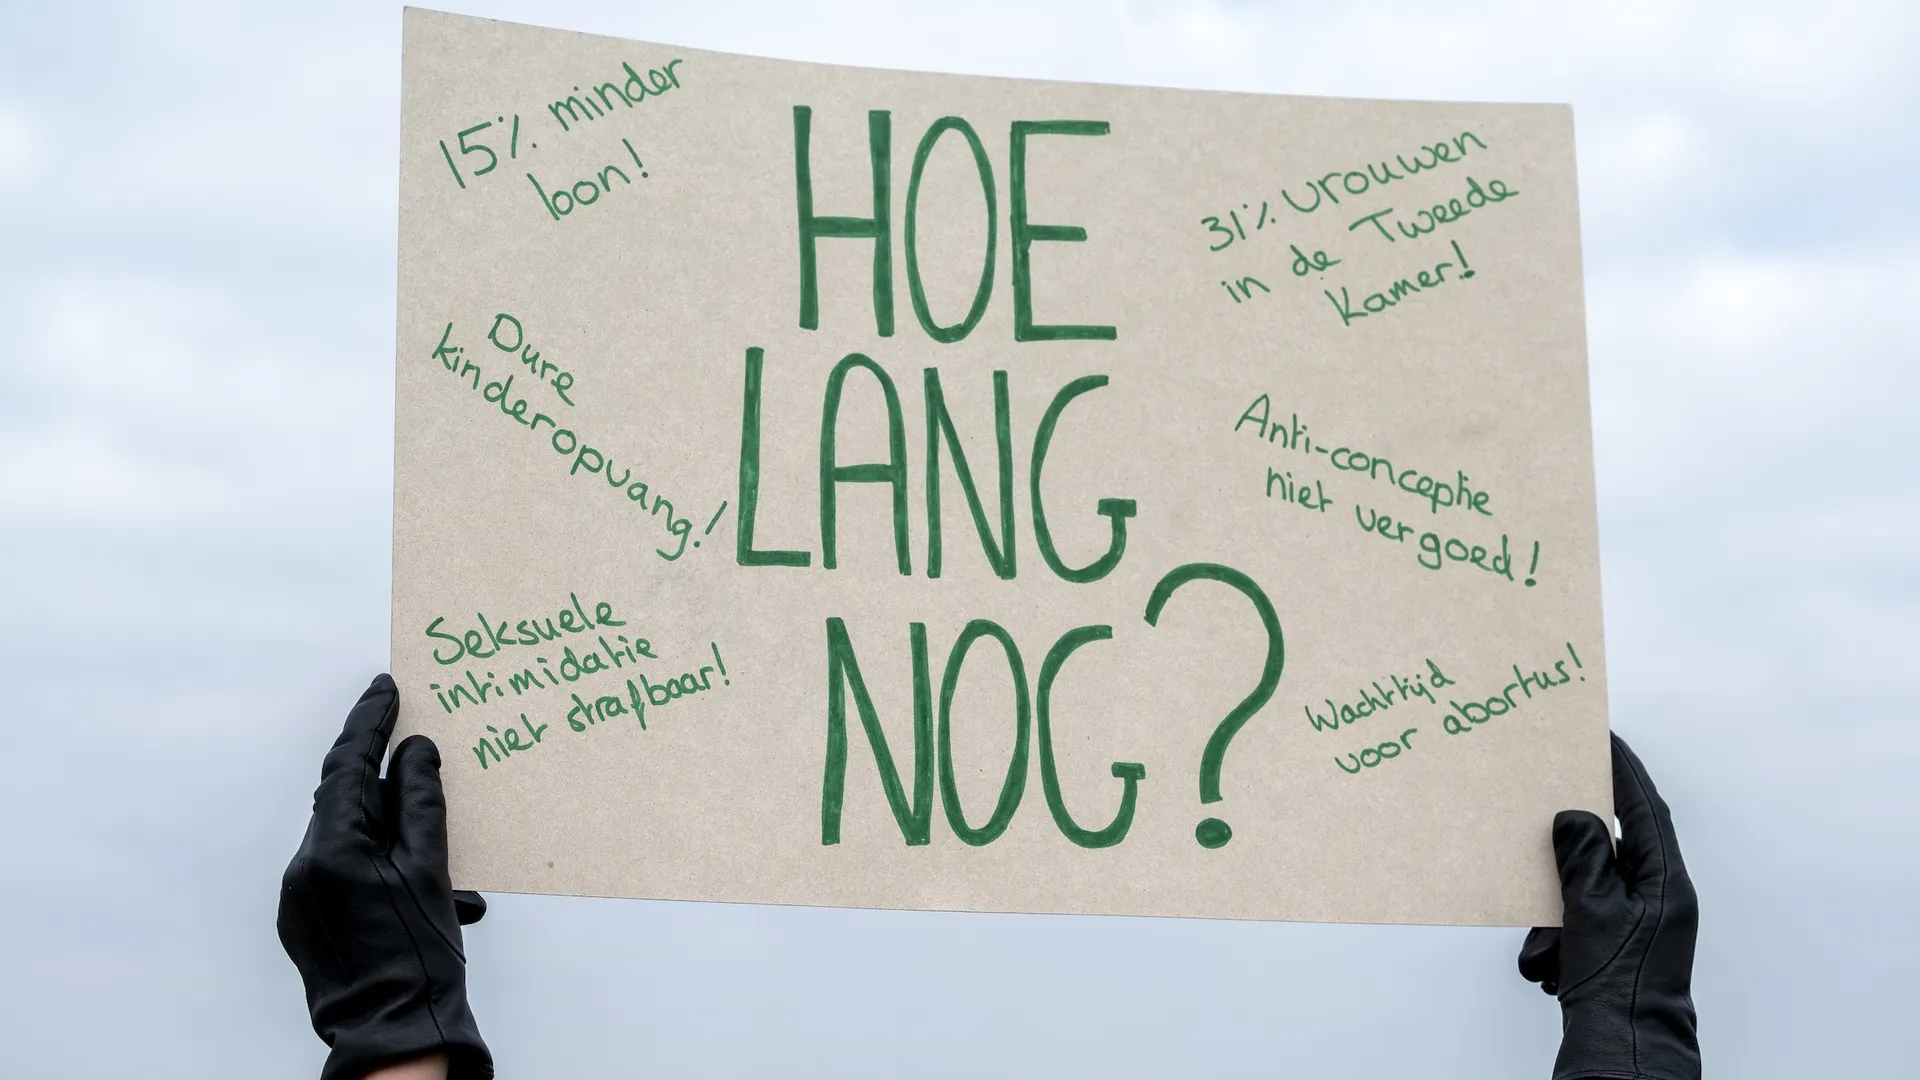 15% minder
loon!
Dure
kinderopvang!
Seksuele
intimidatie
niet strafbaar!
HOE
LANG
NOG?
31% vrouwen
in de Tweede
Kamer!
Anti-conceptie
niet vergoed!
Wachttijd
voor abortus!